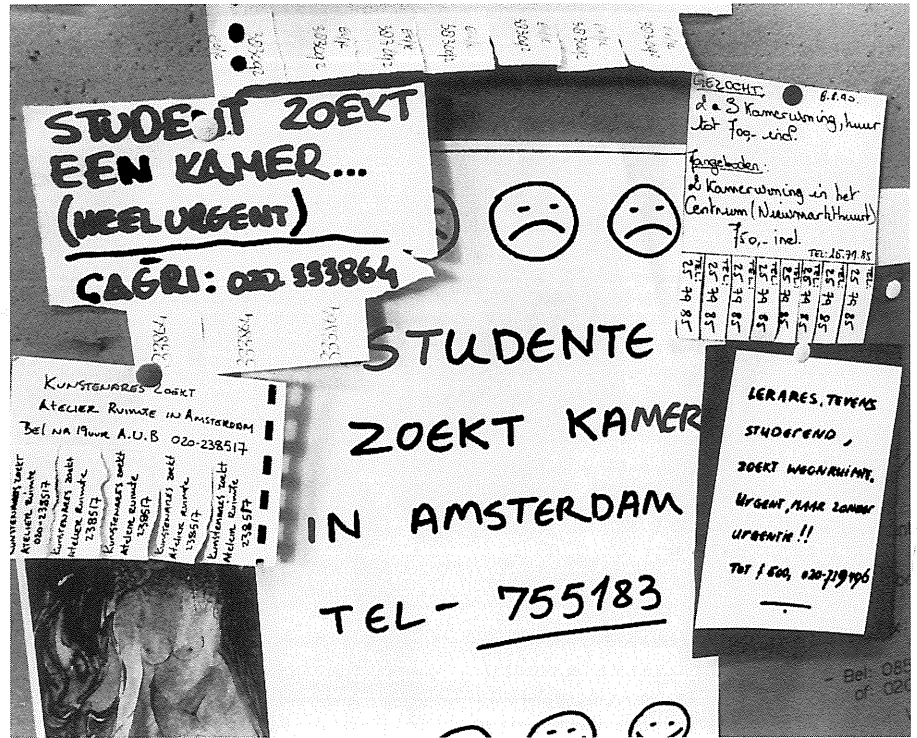 STUDENT ZOEKT
EEN KAMER...
(HEEL URGENT)
ÇAĞRI: 020 333864
333864
333864
333864
GEZOCHT.
2 a 3 Kamerwoning, huur
tot 700,- incl.
Aangeboden.
2 Kamerwoning in het
Centrum (Nieuwmarktbuurt)
750,- incl.
TEL: 25.79.85
TEL: 25 79 85
TEL: 25 79 85
TEL: 25 79 85
TEL: 25 79 85
TEL: 25 79 85
TEL: 25 79 85
TEL: 25 79 85
STUDENTE
ZOEKT KAMER
IN AMSTERDAM
TEL- 755183
KUNSTENARES ZOEKT
ATELIER RUIMTE IN AMSTERDAM
BEL NA 19UUR A.U.B 020-238517
KUNSTENARES ZOEKT
ATELIER RUIMTE
020-238517
Kunstenares zoekt
Atelier Ruimte
238517
Kunstenares zoekt
Atelier Ruimte
238517
Kunstenares zoekt
Atelier Ruimte
238517
Kunstenares zoekt
Atelier Ruimte
238517
LERARES, TEVENS
STUDEREND,
ZOEKT WOONRUIMTE.
URGENT, MAAR ZONDER
URGENTIE!!
TOT f 500,
- Bel: 085
of: 020